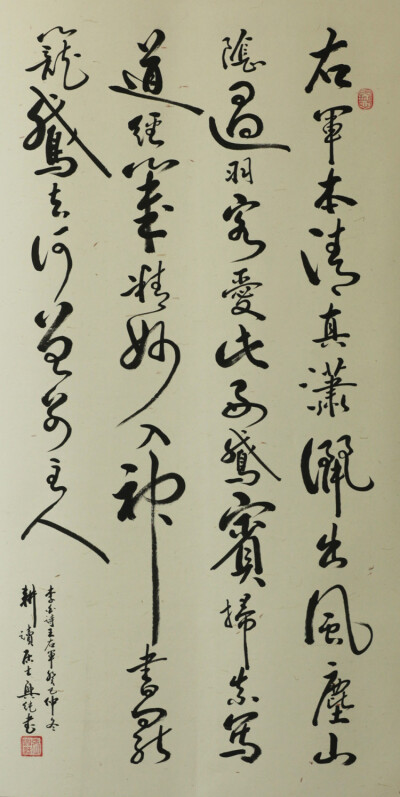 右軍本清真瀟灑出風塵山
陰過羽客愛此好鵞賓掃素寫
道經筆精妙入神書罷
籠鵞去何曾別主人
李白詩王右軍癸巳仲冬
耕讀居士興純書